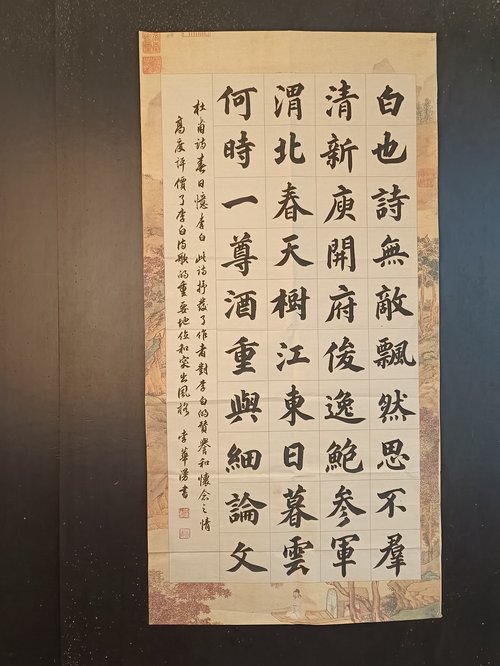 白也詩無敵飄然思不羣
清新庾開府俊逸鮑參軍
渭北春天樹江東日暮雲
何時一尊酒重與細論文
杜甫诗春日憶李白此诗抒發了作者對李白的贊譽和懷念之情
高度評價了李白诗歌的重要地位和突出風格 李華
書